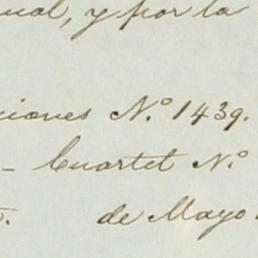 ual, y por la
ciones N.º 1439.
- Cuartel N.º
de Mayo